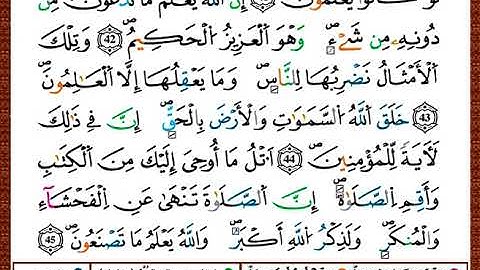 لَوْ كَانُوا يَعْلَمُونَ ۝ إِنَّ ٱللَّهَ يَعْلَمُ مَا يَدْعُونَ مِن
دُونِهِۦ مِن شَىْءٍ ۚ وَهُوَ ٱلْعَزِيزُ ٱلْحَكِيمُ ﴿42﴾ وَتِلْكَ
ٱلْأَمْثَـٰلُ نَضْرِبُهَا لِلنَّاسِ ۖ وَمَا يَعْقِلُهَا إِلَّا ٱلْعَـٰلِمُونَ
﴿43﴾ خَلَقَ ٱللَّهُ ٱلسَّمَـٰوَٰتِ وَٱلْأَرْضَ بِٱلْحَقِّ ۚ إِنَّ فِى ذَٰلِكَ
لَـَٔايَةً لِّلْمُؤْمِنِينَ ﴿44﴾ ٱتْلُ مَا أُوحِىَ إِلَيْكَ مِنَ ٱلْكِتَـٰبِ
وَأَقِمِ ٱلصَّلَوٰةَ ۖ إِنَّ ٱلصَّلَوٰةَ تَنْهَىٰ عَنِ ٱلْفَحْشَآءِ
وَٱلْمُنكَرِ ۗ وَلَذِكْرُ ٱللَّهِ أَكْبَرُ ۗ وَٱللَّهُ يَعْلَمُ مَا تَصْنَعُونَ ﴿45﴾